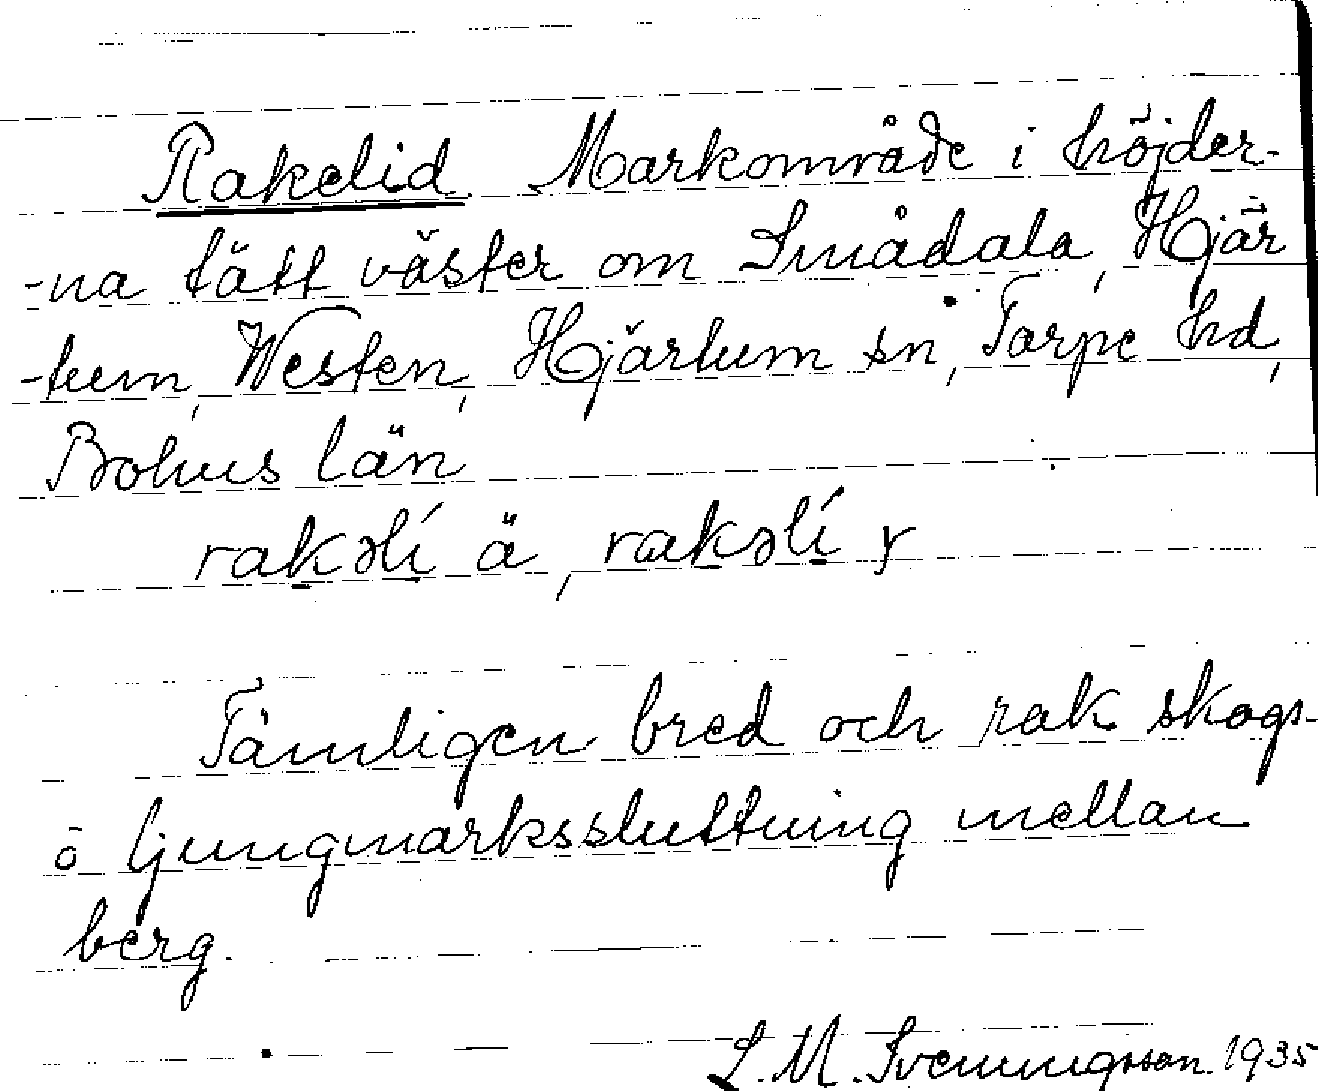 Rakelid. Markområde i höjder-
-na tätt väster om Smådala, Hjär
-tum, Westen, Hjärtum sn, Torpe hd,
Bohus län
rakəlí ä, rakəlí y
Tämligen bred och rak skogs-
o ljungmarkssluttning mellan
berg.
S. M. Svenningsson. 1935